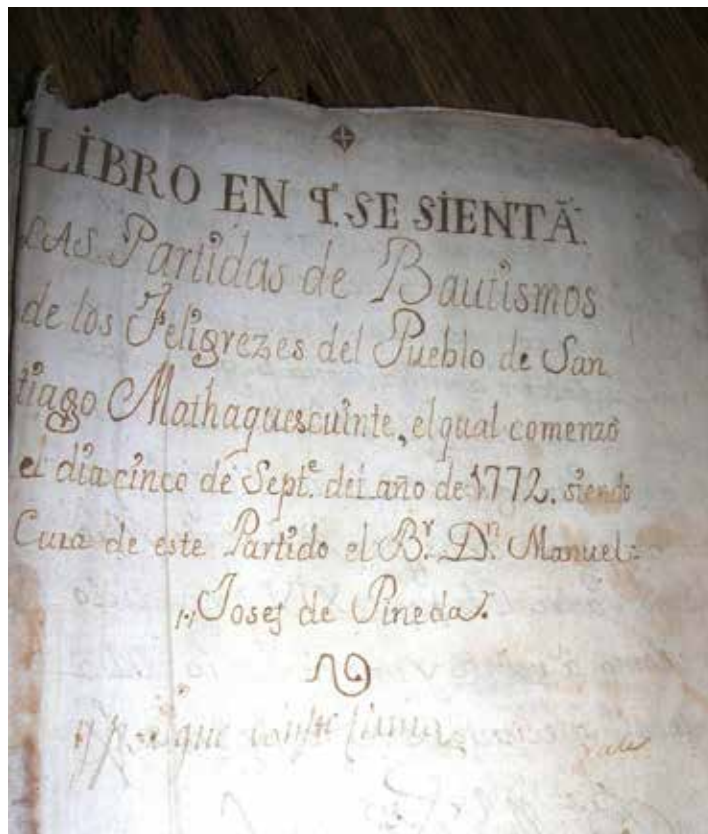 LIBRO EN q̃. SE SIENTÃ.
LAS Partidas de Bautismos
de los Feligrezes del Pueblo de San
tiago Mathaquescuinte, el qual comenzò
el dia cinco de Septe. del año de 1772. siendo
Cura de este Partido el Br. Dn. Manuel=
Josef de Pineda.